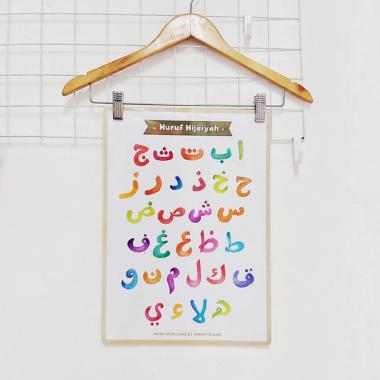 Huruf Hijaiyah
ا ب ت ث ج
ح خ د ذ ر ز
س ش ص ض
ط ظ ع غ ف
ق ك ل م ن و
ه لا ء ي
MADE WITH LOVE BY